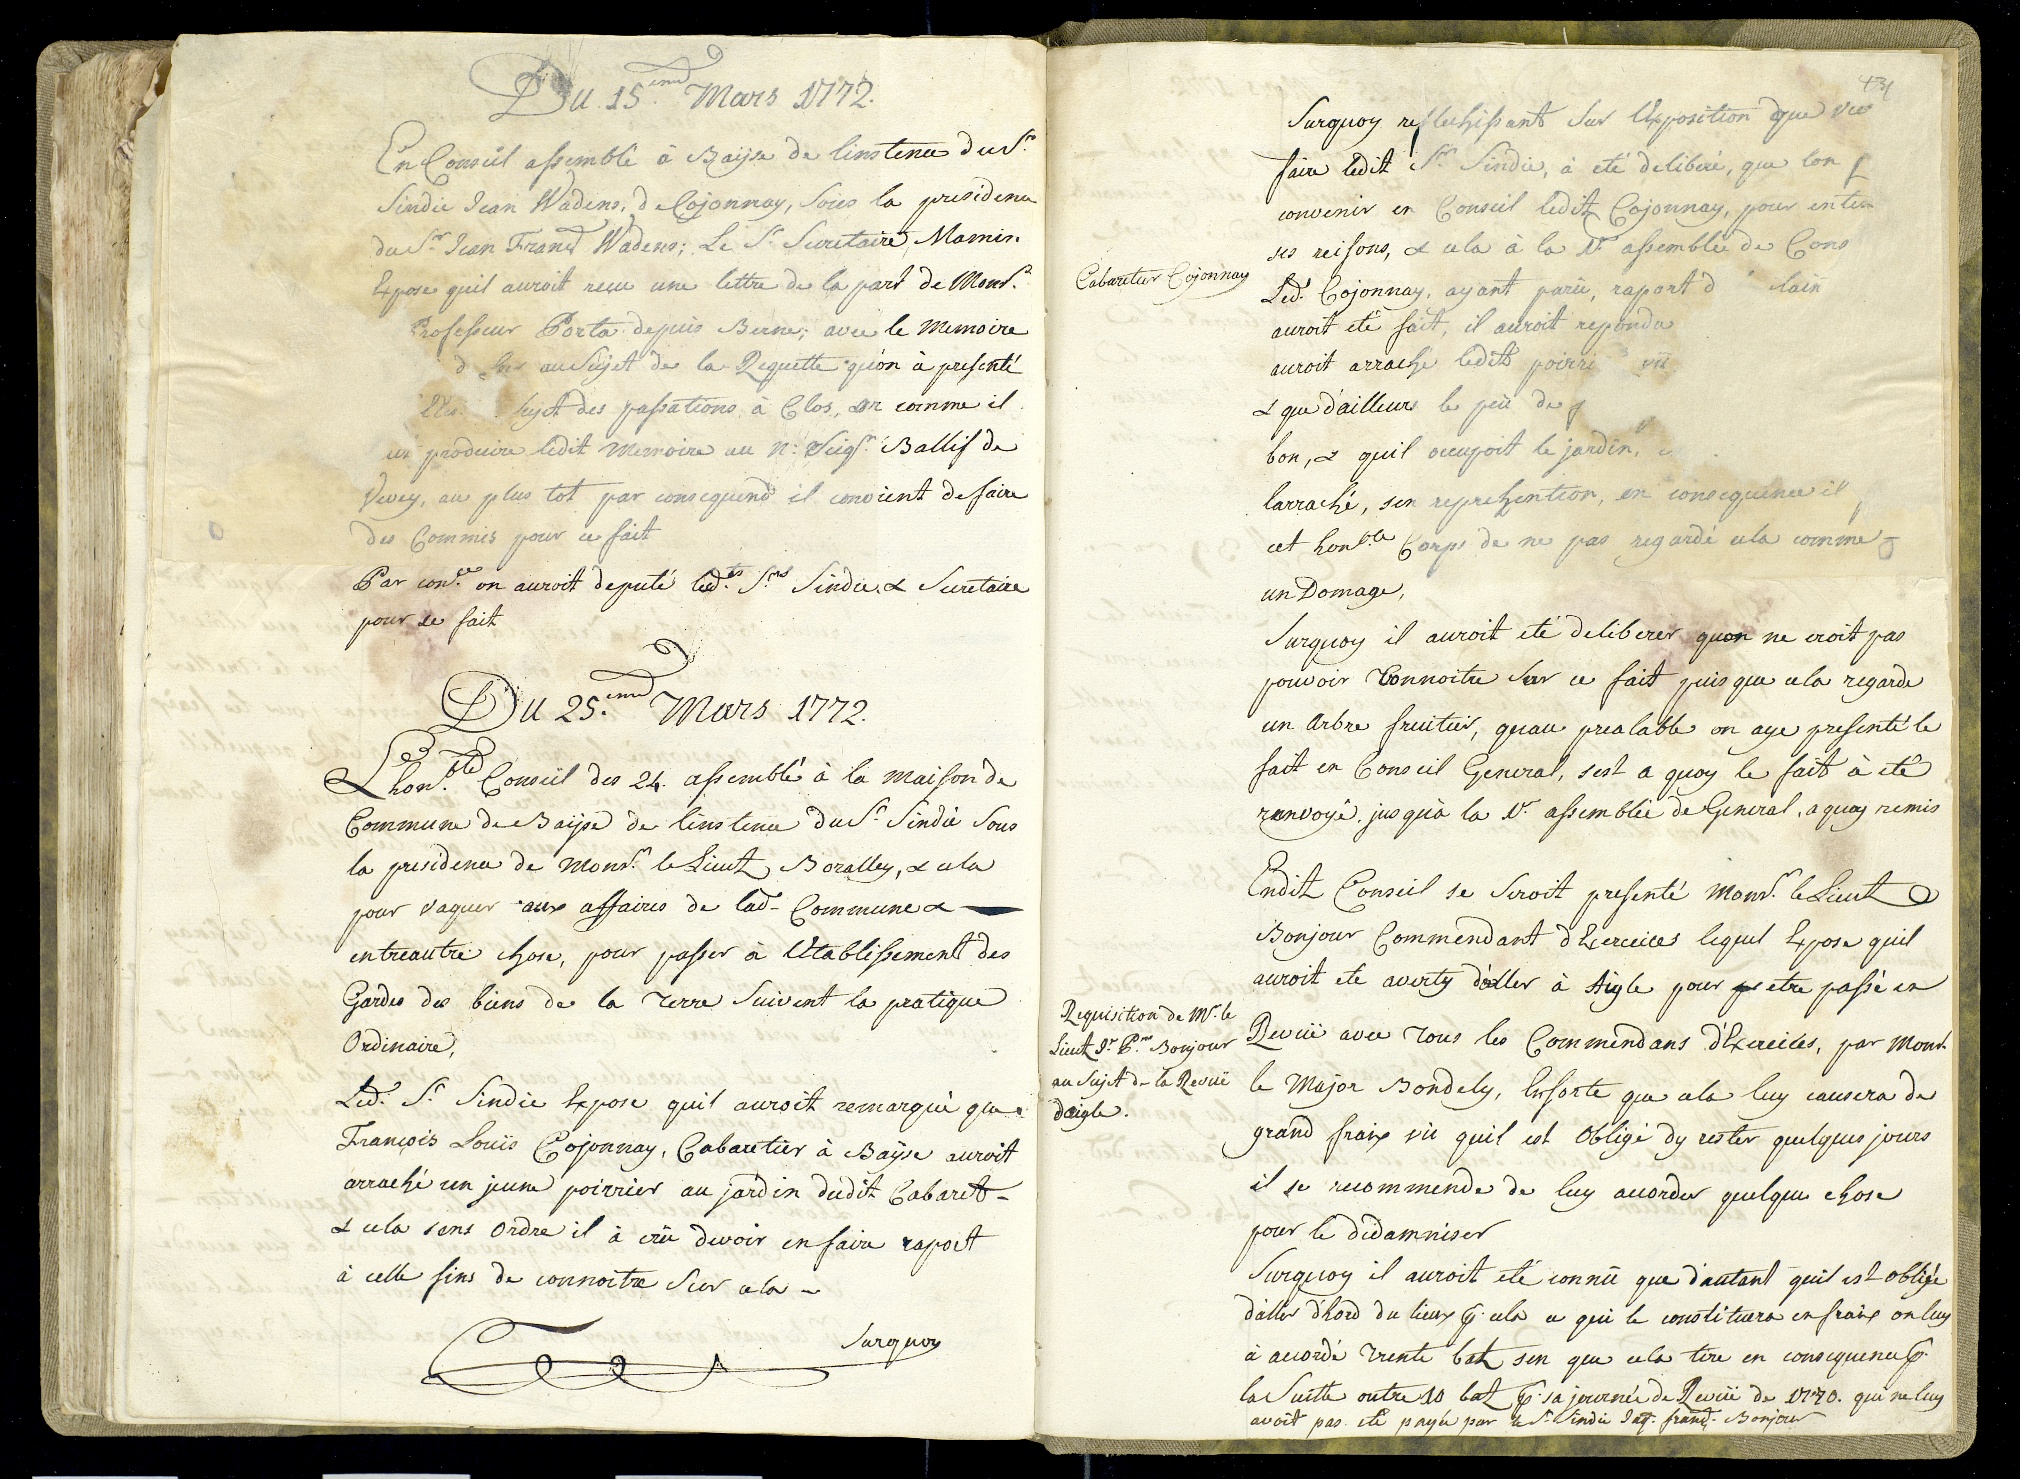 Du 15.eme Mars 1772.
En Conseil assemblé à Baÿse de linstence du Sr.
Sindic Jean Wadens, d Cojonnay, Sous la presidence
du Sr. Jean Francs Wadens; Le Sr. Secretaire Mamin.
Expose quil auroit reçu une lettre de la part de Monsr.
Professeur Porta depuis Berne; avec le Memoire
au Sujet de la Requette qu'on à presenté
Sujet des passations à Clos, or comme il
produire ledit Memoire au N: Seigr. Ballif de
Vevey, au plus tot par consequend il convient de faire
des Commis pour ce fait
Par conce. on auroit deputé leds. Srs Sindic & Secretaire
pour se fait
Du 25.eme Mars 1772.
L'honble. Conseil des 24. assemblé à la maison de
Commune de Baÿse de linstence du Sr. Sindic Sous
la presidence de Monsr. le Lieut Boralley, & cela
pour vaquer aux affaires de lad- Commune &
entreautre chose, pour passer à l'Etablissement des
Gardes des biens de la Terre Suivent la pratique
Ordinaire,
Led. Sr. Sindic Expose quil auroit remarqué que
François Louïs Cojonnay, Cabaretier à Baÿse auroit
arraché un jeune poirrier au jardin dudit Cabaret-
& cela sens Ordre il à crû devoir en faire raport
à celle fins de connoitre Sur cela ~
Surquoy
431
Surquoy reflechissant Sur l'Exposition que
faire ledit Sr. Sindic, à eté deliberé, que lon f
convenir en Conseil ledit Cojonnay, pour
ses reisons, & cela à la 1re assemblée de Cons
Cabaretier Cojonnay
Led. Cojonnay, ayant parû, raport d
auroit eté fait, il auroit repondu
auroit arraché ledit poirri
& que d'ailleurs le peü de
bon, & quil occupoit le jardin,
larraché, sen reprehention, en consequence il
cet honble Corps de ne pas regardé cela comme
un Domage,
Surquoy il auroit eté deliberer quon ne croit pas
pouvoir Connoitre Sur ce fait puis que cela regarde
un Arbre fruitier, quau prealable on aye presenté le
fait en Conseil General, sest a quoy le fait à eté
renvoyé jusqu'à la 1r. assemblée de General, a quoy remis
Endit Conseil se Seroit presenté Monsr. le Lieut
Bonjour Commendant d'Exercices lequel Expose quil
auroit ete averty d'aller à Aigle pour etre passé en
Requisition de Mr. le
Lieut Jn Prre Bonjour
au Sujet de la Revüe
daigle.
Revüe avec tous les Commendans d'Exercices, par Monsr.
le Major Bondely, Ensorte que cela luy causera de
grand fraix vû quil est Obligé dy rester quelques jours
il se recommende de luy accorder quelque chose
pour le dedamniser
Surquoy il auroit eté connû que d'autant quil est obligée
d'aller d'hord du lieux p. cela ce qui le constituera en fraix on luy
à accordé Trente batz sen que cela tire en consequence p.
la Suitte outre 10 batz p. sa journée de Revüe de 1770. qui ne luy
avoit pas eté payée par le Sr. Sindic Jaq. francs. Bonjour